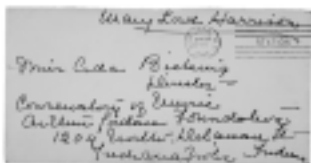 Mary Love Harrison
Miss Ada Bicking
Director
Conservatory of Music
Arthur Jordan Foundation
1204 North Delaware St
Indianapolis